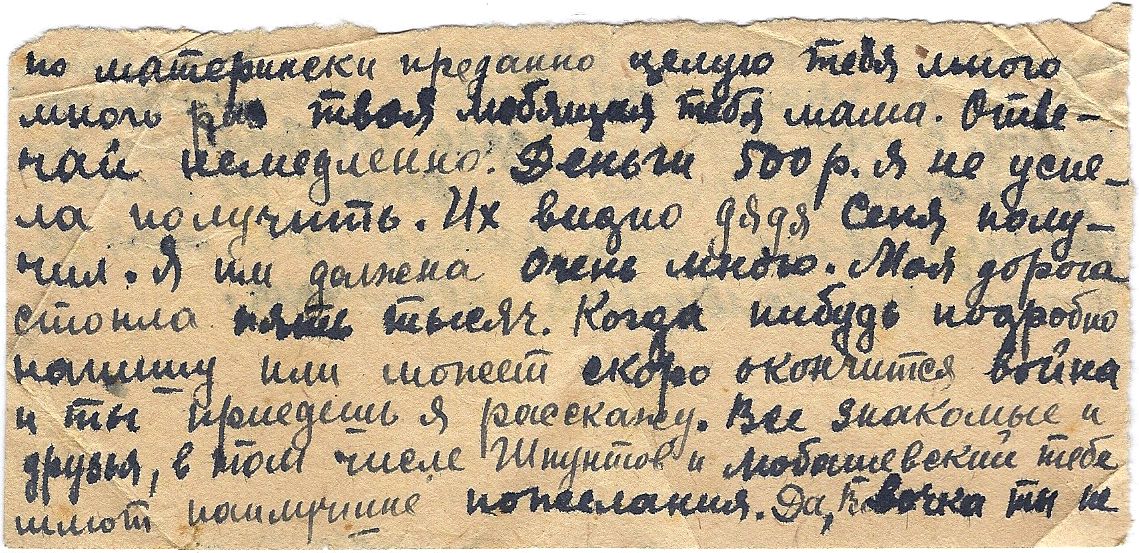 по матерински преданно целую тебя много
много раз твоя любящая тебя мама. Отве-
чай немедленно. Деньги 500 р. я не успе-
ла получить. Их видно дядя Сеня полу-
чил. Я им должена очень много. Моя дорога
стоила пять тысяч. Когда нибудь подробно
напишу или может скоро окончится война
и ты приедешь я расскажу. Все знакомые и
друзья, в том числе Шпунтов и Любашевский тебе
шлют наилучшие пожелания. Да, ты не